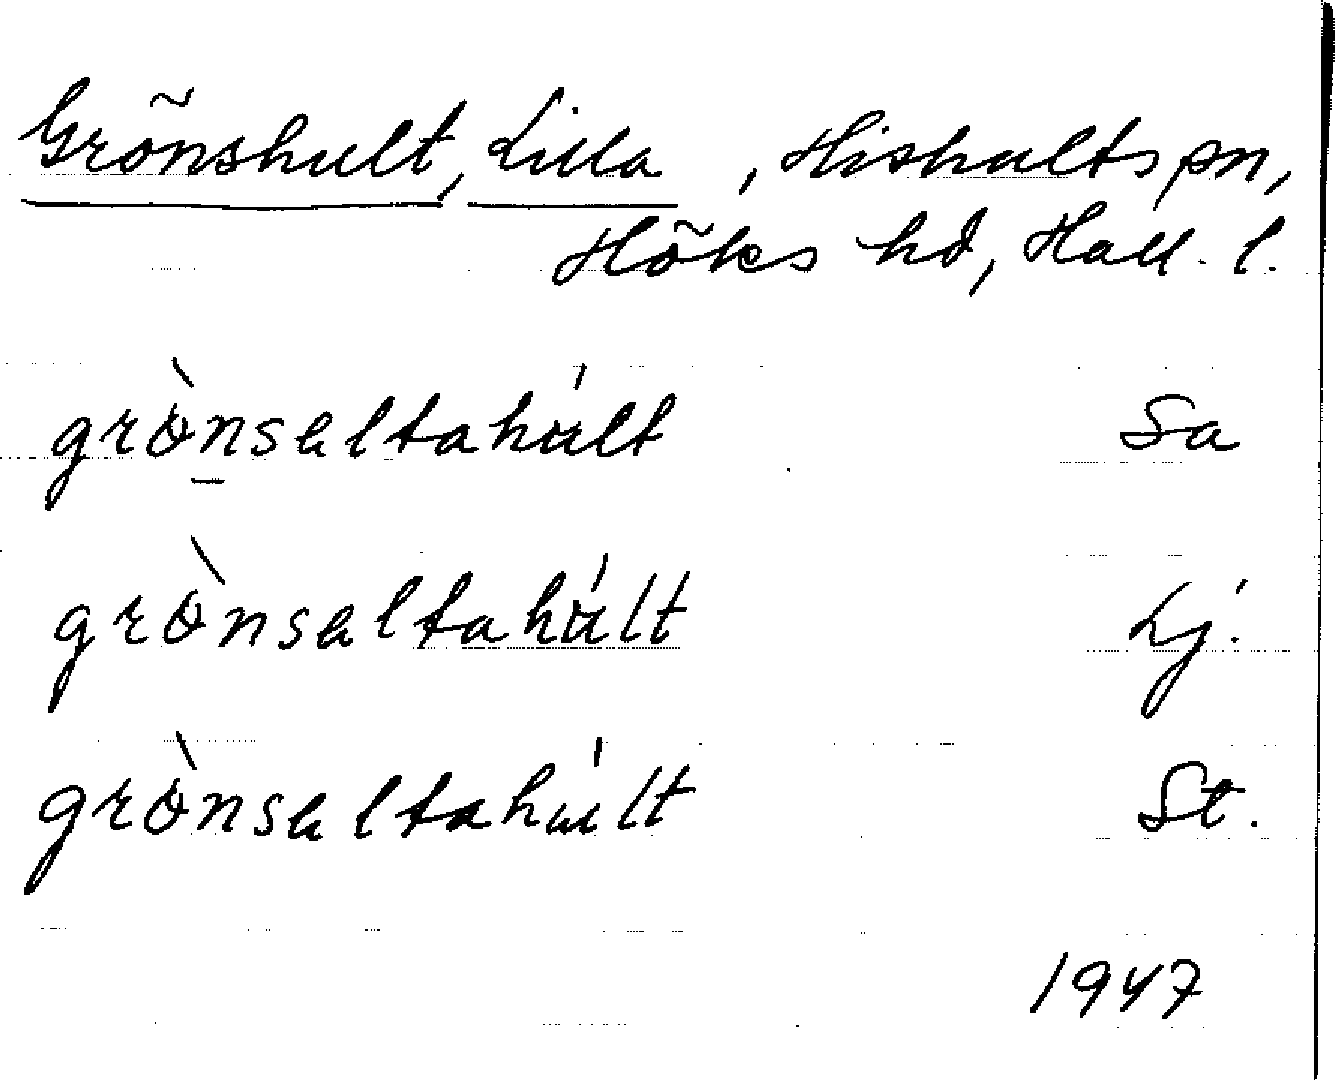 Grönshult, Lilla, Hishults sn,
Höks hd, Hall. l.
grònsaltahúlt Sa
grònsaltahúlt Lj.
grònsaltahúlt St.
1947